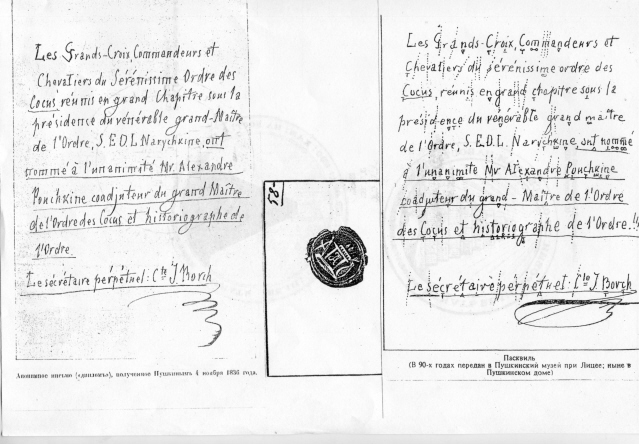 Les Grands-Croix, Commandeurs et
Chevaliers du Sérénissime Ordre des
Cocus réunis en grand Chapitre sous la
présidence du vénérable grand-Maître
de l'Ordre, S.E.D.L. Narychkine, ont
nommé à l'unanimité Mr. Alexandre
Pouchkine coadjuteur du grand Maître
de l'Ordre des Cocus et historiographe de
l'Ordre.
Le sécrétaire pérpétuel: Cte J. Borch
Анонимное письмо («дипломъ»), полученное Пушкинымъ 4 ноября 1836 года.
58-
Les Grands-Croix, Commandeurs et
Chevaliers du sérénissime ordre des
Cocus, réunis en grand chapitre sous la
présidence du vénérable grand maître
de l'Ordre, S.E.D.L. Narychkine, ont nommé
à l'unanimité Mr Alexandre Pouchkine
coadjuteur du grand-Maître de l'Ordre
des Cocus et historiographe de l'Ordre.
Le sécrétaire pérpétuel: Cte J. Borch
Пасквиль
(В 90-х годах передан в Пушкинский музей при Лицее; ныне в
Пушкинском доме)